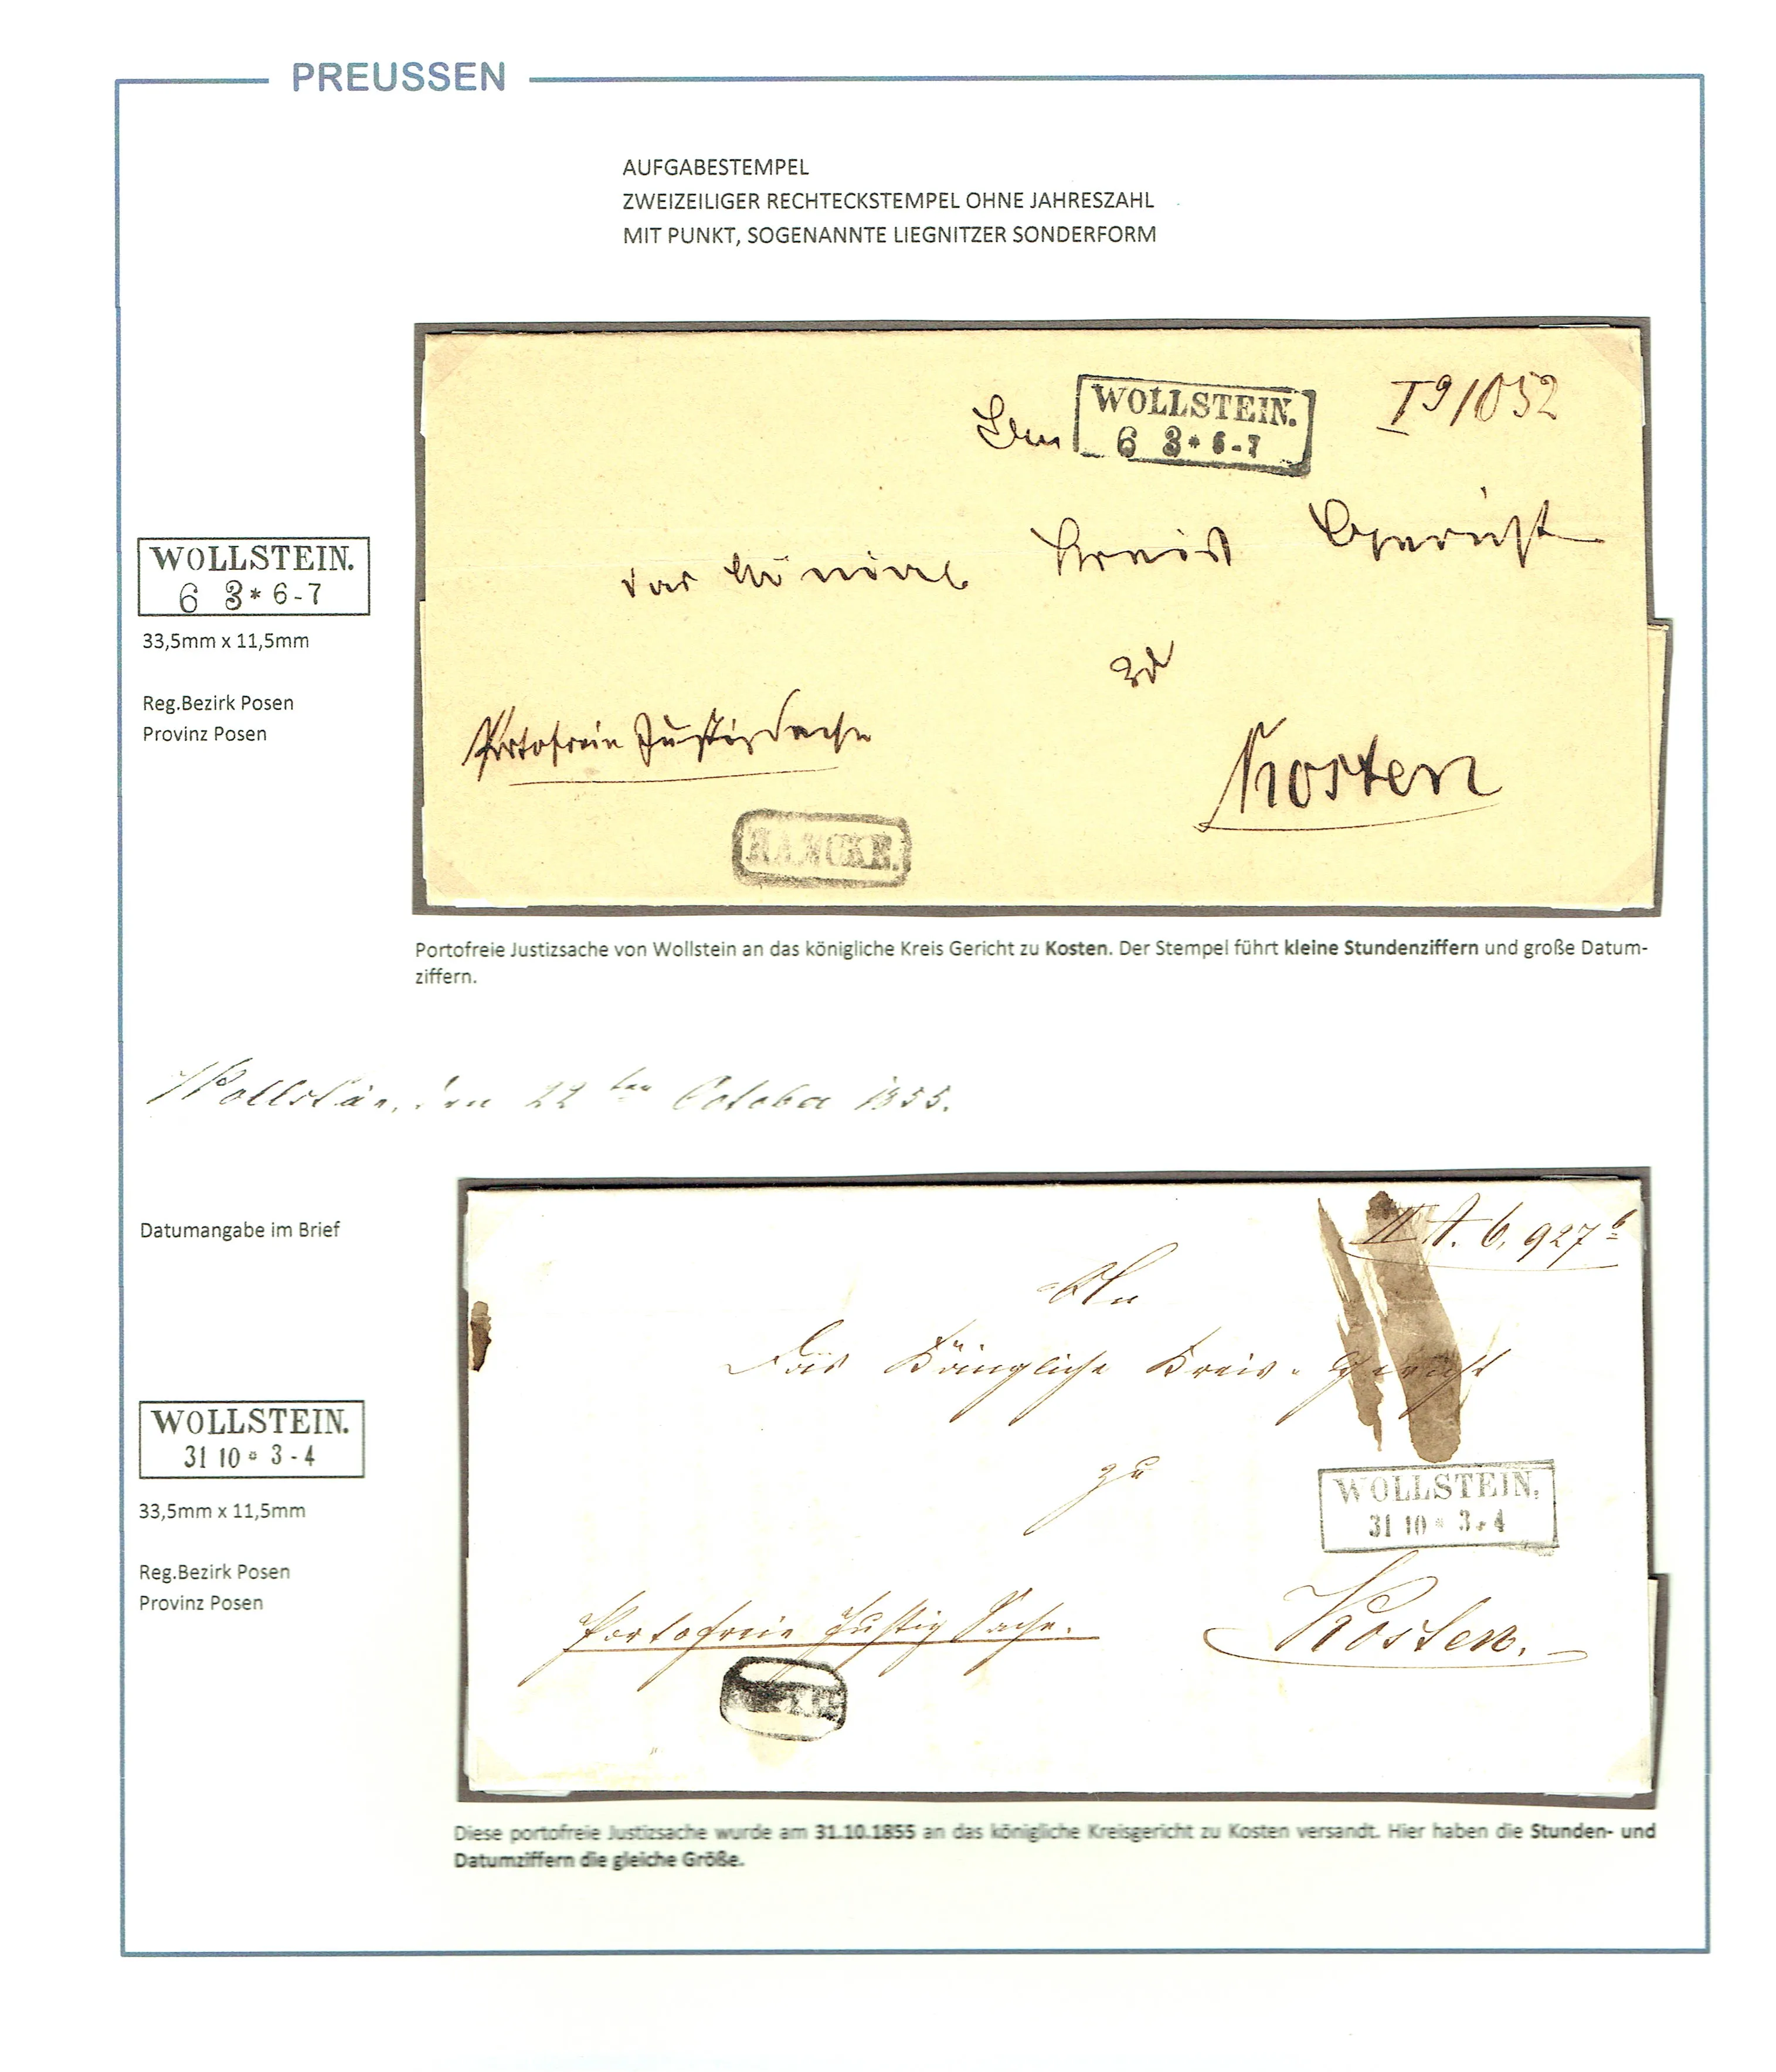 PREUSSEN
AUFGABESTEMPEL
ZWEIZEILIGER RECHTECKSTEMPEL OHNE JAHRESZAHL
MIT PUNKT, SOGENANNTE LIEGNITZER SONDERFORM
WOLLSTEIN.
6 3 * 6-7
I 9/052
Kreis Gericht
zu
Portofreie Justizsache
Kosten
WOLLSTEIN.
6 3 * 6-7
33,5mm x 11,5mm
Reg.Bezirk Posen
Provinz Posen
Portofreie Justizsache von Wollstein an das königliche Kreis Gericht zu Kosten. Der Stempel führt kleine Stundenziffern und große Datum-
ziffern.
Wollstein, den 22ten October 1855.
Datumangabe im Brief
II A. 6. 927
An
Das Königliche Kreis-Gericht
zu
WOLLSTEIN.
31 10 * 3-4
Portofreie Justiz Sache.
Kosten.
WOLLSTEIN.
31 10 * 3-4
33,5mm x 11,5mm
Reg.Bezirk Posen
Provinz Posen
Diese portofreie Justizsache wurde am 31.10.1855 an das königliche Kreisgericht zu Kosten versandt. Hier haben die Stunden- und
Datumziffern die gleiche Größe.